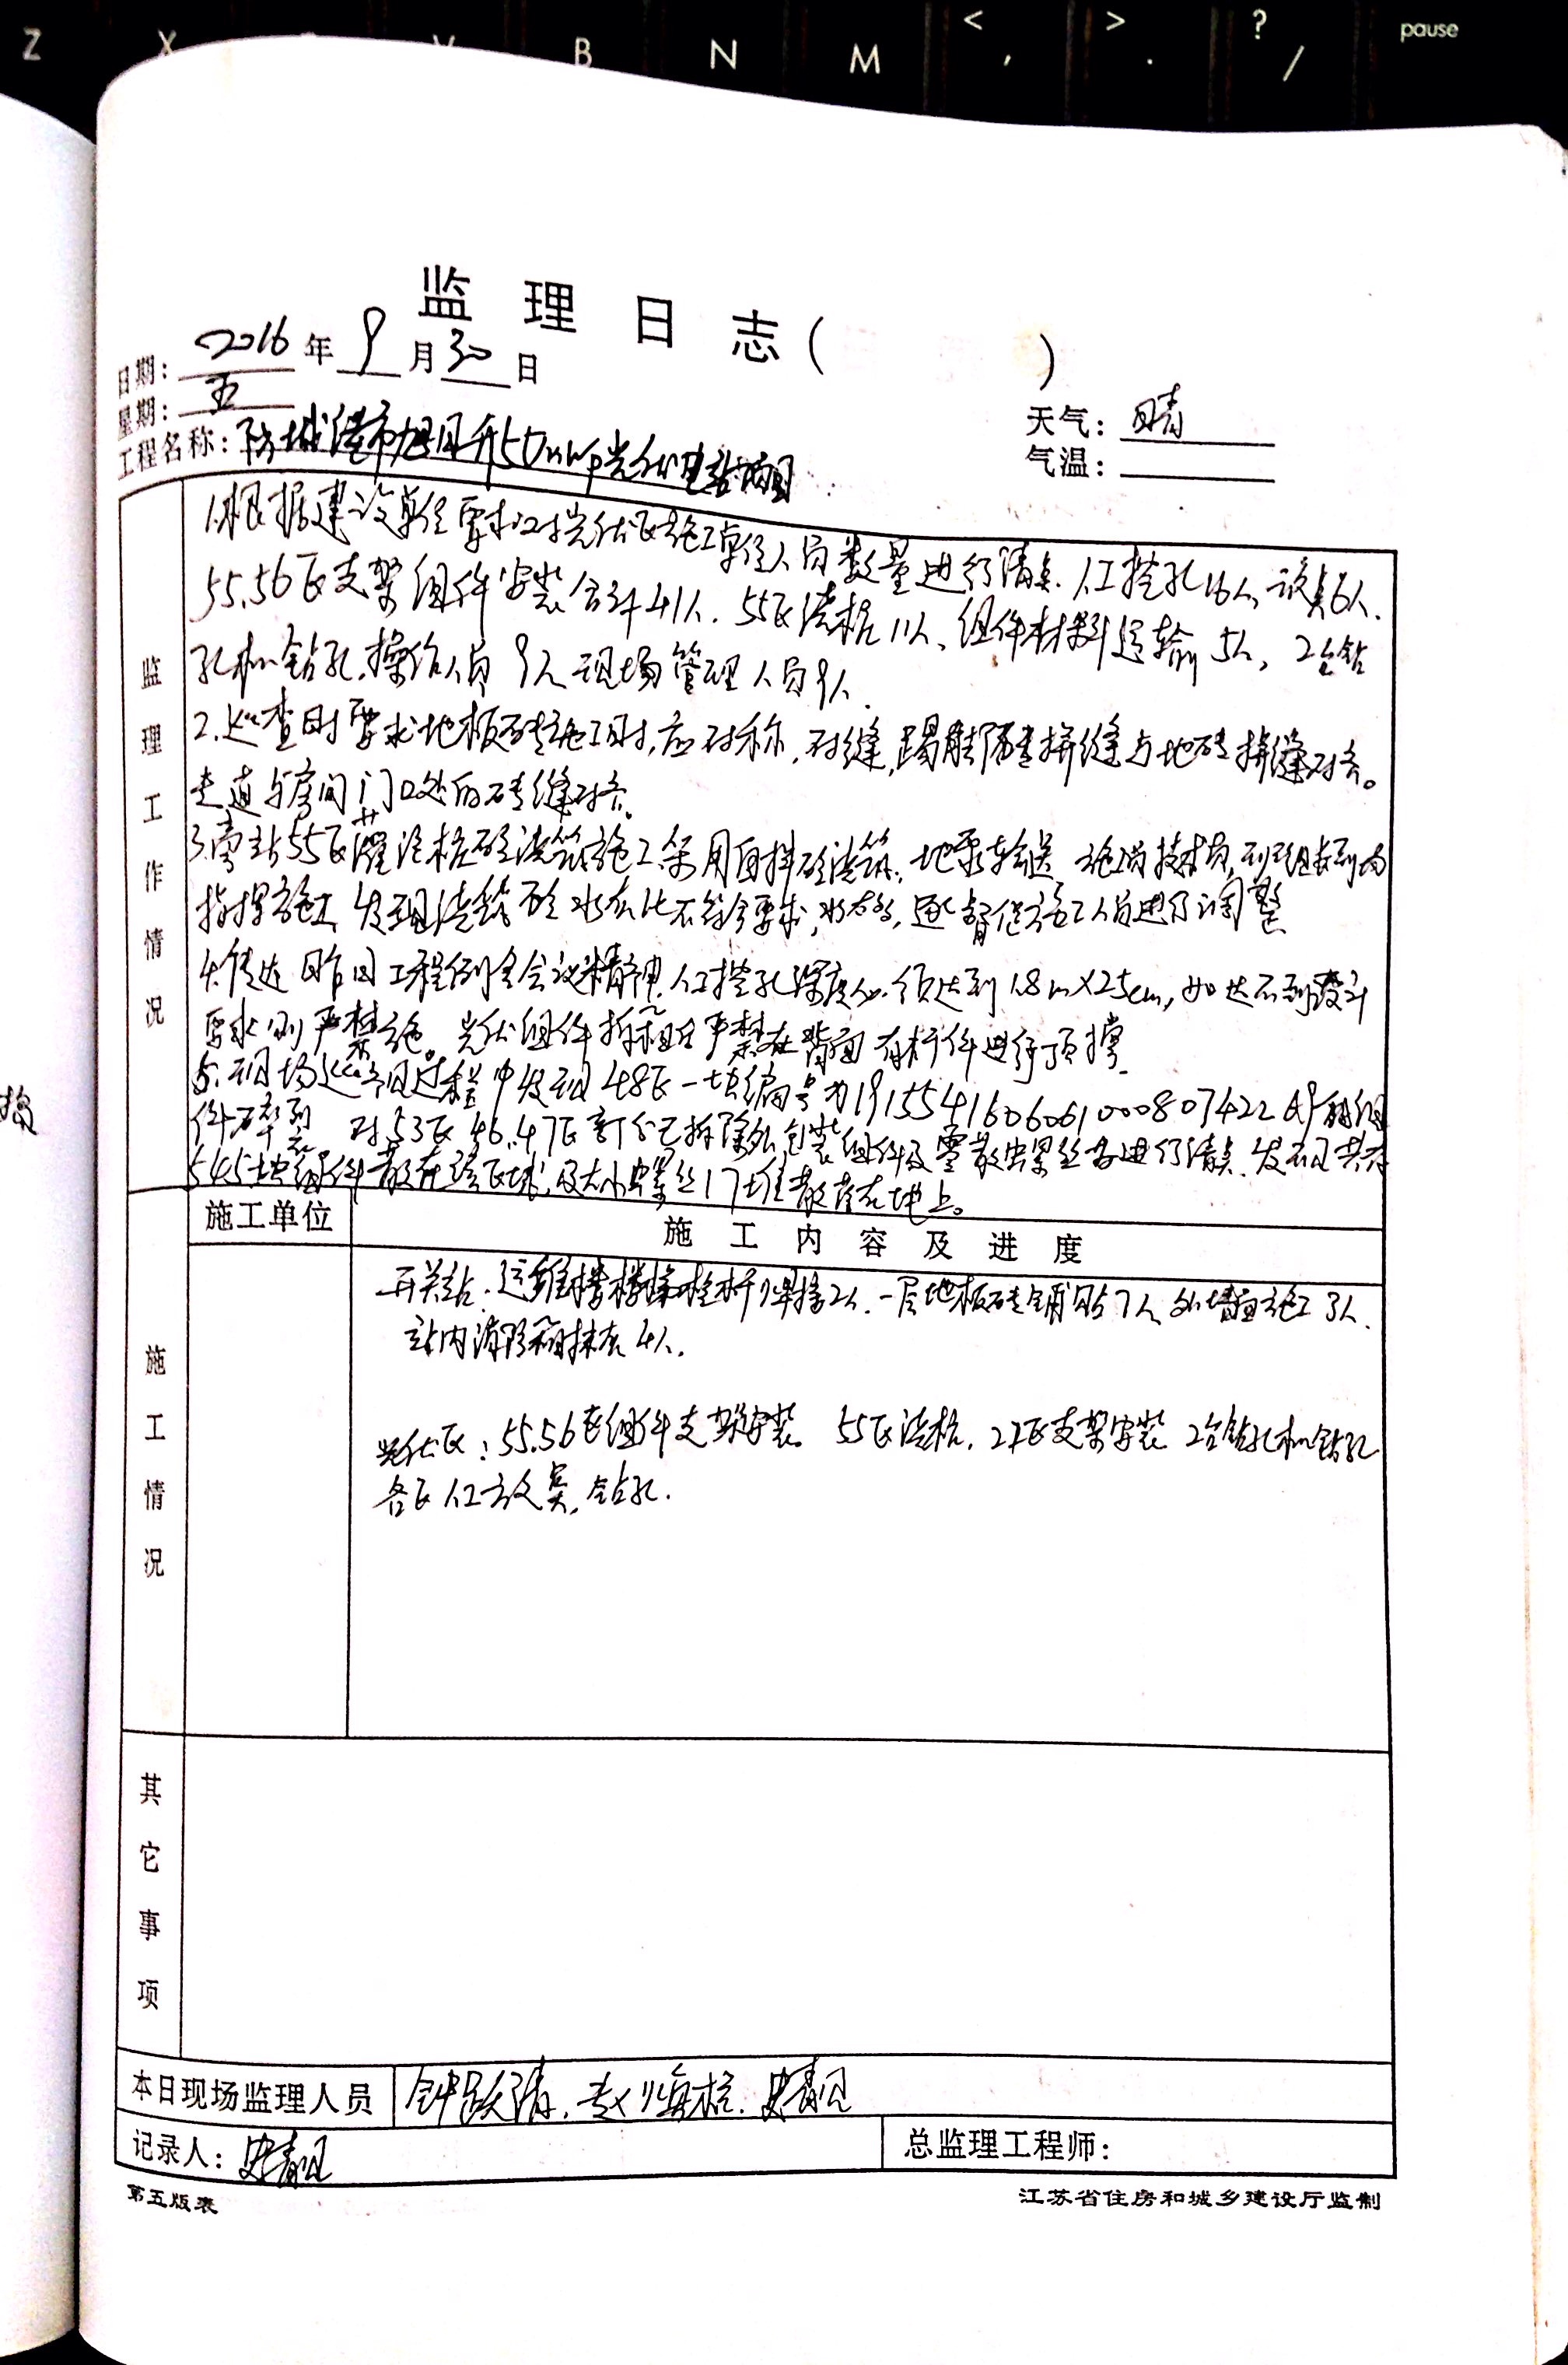 Z X V B N M < , > . ? / pause
监 理 日 志 ( )
日期: 2016 年 9 月 30 日
星期: 五
天气: 晴
工程名称: 防城港市旭日升50mwp光伏电站项目
气温:
监理工作情况
1.根据建设单位要求对光伏区施工单位人员数量进行清点.人工挖孔16人,放点6人.
55.56区支架组件安装合计41人.55区浇桩11人、组件材料运输5人,2台钻
孔机钻孔.操作人员9人 现场管理人员9人.
2.巡查时要求地板砖施工时,应对称,对缝,踢脚砖拼缝与地砖拼缝对齐。
走道与房间门口处的砖缝对齐。
3.旁站55区灌注桩砼浇筑施工采用自拌砼浇筑,地泵输送 施工技术员,班组长到岗
指挥施工 发现浇筑砼水灰比不符合要求,水太多,逐督促施工人员进行调整
4.传达昨日工程例会会议精神,人工挖孔深度必须达到1.8m×25cm,如达不到设计
要求则严禁施。光伏组件 严禁在背面有杆件进行顶撑
5.现场巡视过程中发现48区一块编号为191554160606100080 7422 的组
件碎裂 对53区46.47区部分已拆除外包装组件及零散螺丝等进行清点.发现共有
545块组件散在该区域,及大小螺丝17堆散落在地上。
施工单位 施 工 内 容 及 进 度
施工情况
开关站.运维楼楼梯栏杆焊接2人.一层地板砖铺贴7人 外墙面施工3人.
站内消防箱抹灰4人.
光伏区:55.56区组件支架安装。55区浇桩.27区支架安装 2台钻孔机钻孔
各区人工放点,钻孔.
其它事项
本日现场监理人员 钟跃清.赵海桩.史青
记录人: 史青
总监理工程师:
第五版表
江苏省住房和城乡建设厅监制